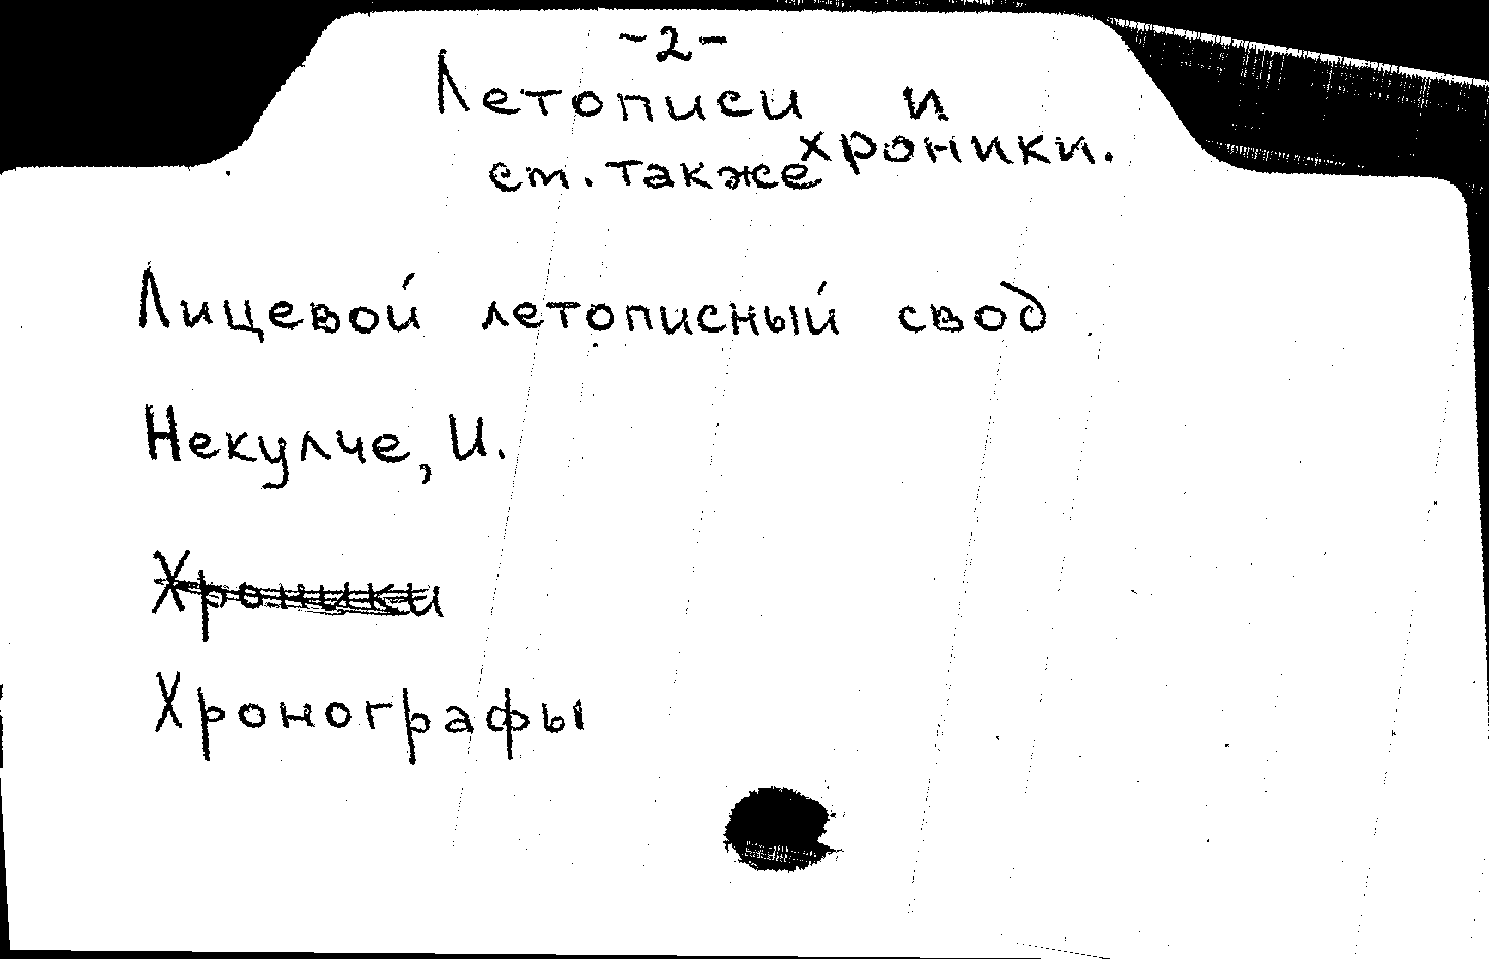 -2-
Летописи и
хроники.
см. также
Лицевой летописный свод
Некулче, И.
Хроники
Хронографы